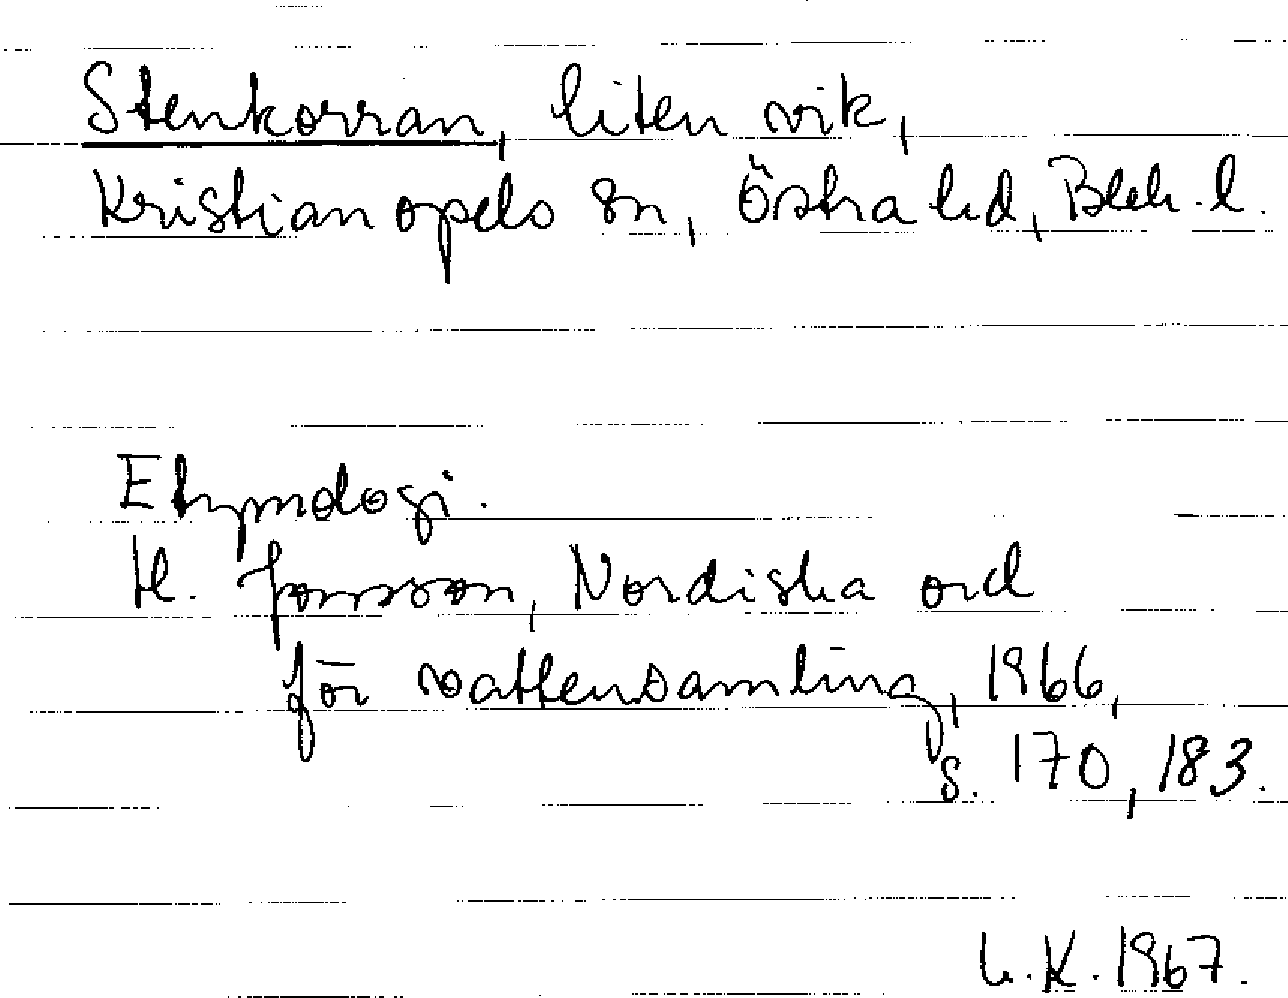 Stenkorran, liten vik,
Kristianopels sn, Östra hd, Blek. l.
Etymologi.
H. Jonsson, Nordiska ord
för vattensamling, 1966,
s. 170, 183.
L.K. 1967.